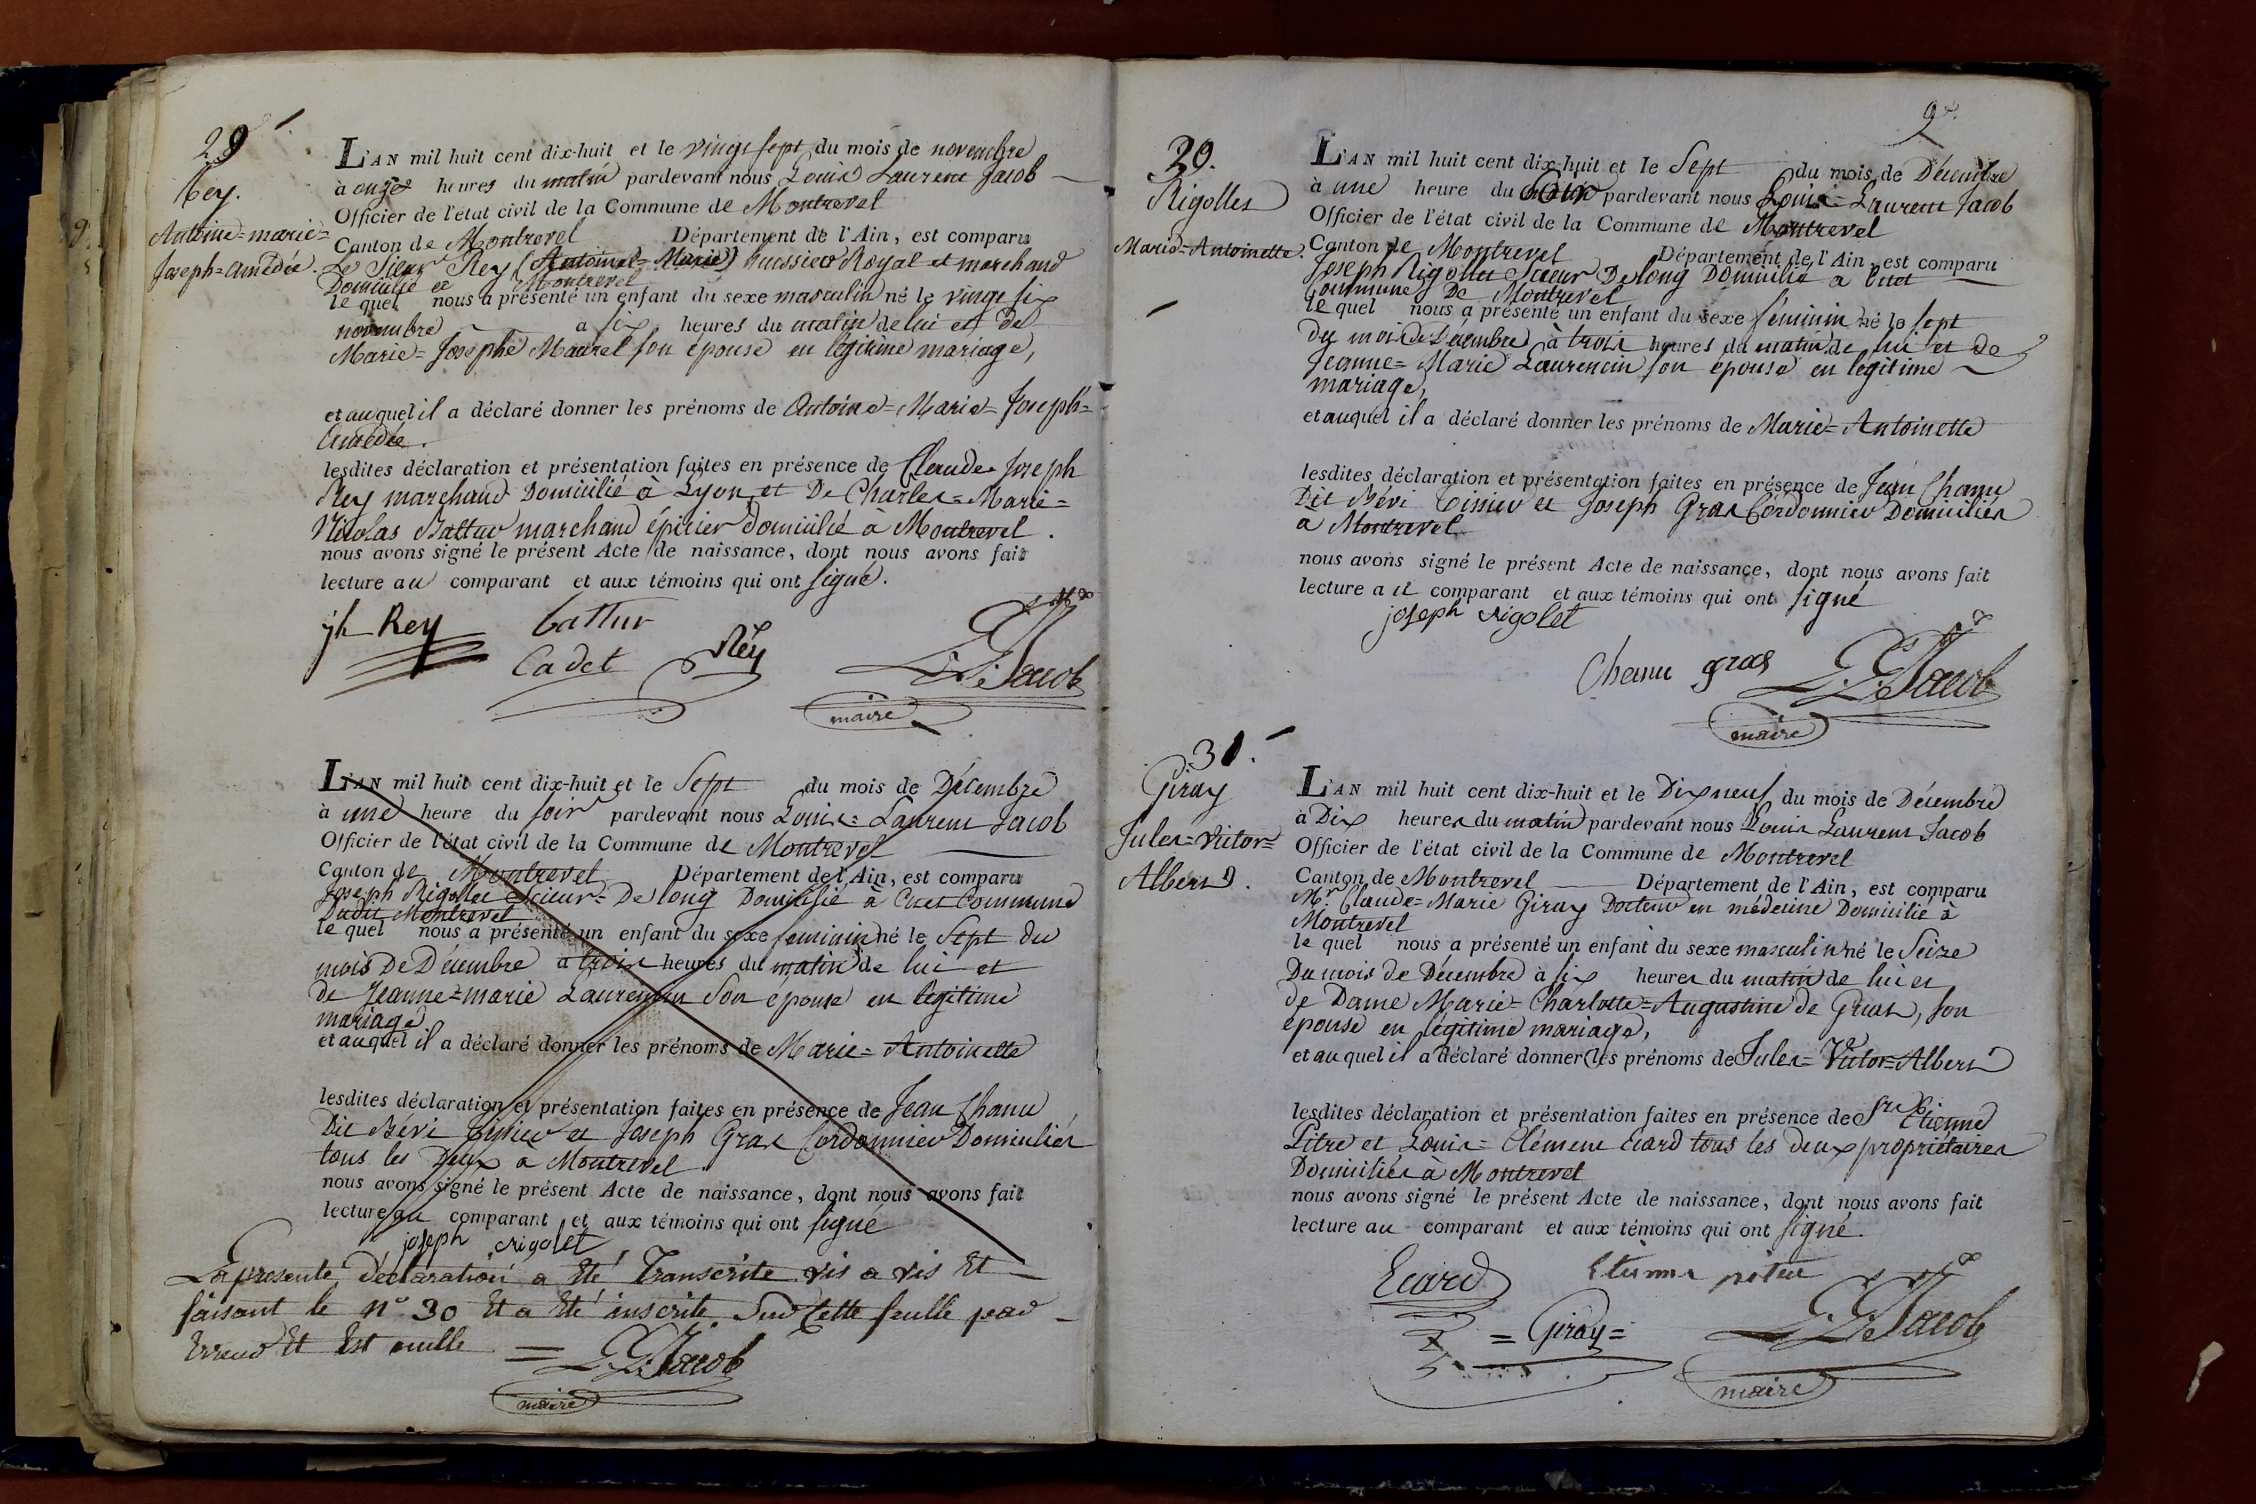 29
Rey.
Antoine=marie=
Joseph=amédée.
L'AN mil huit cent dix-huit et le vingt sept du mois de novembre
à onze heures du matin pardevant nous Louis Laurent Jacob
Officier de l'état civil de la Commune de Montrevel
Canton de Montrevel Département de l'Ain, est comparu
Le Sieur Rey (Antoine=Marie) huissier Royal et marchand
Domicilié à Montrevel
le quel nous a présenté un enfant du sexe masculin né le vingt six
novembre à six heures du matin de lui et de
Marie=Josephe Maurel son épouse en légitime mariage,
et auquel il a déclaré donner les prénoms de Antoine=Marie=Joseph=
Amédée.
lesdites déclaration et présentation faites en présence de Claude Joseph
Rey marchand Domicilié à Lyon et De Charles=Marie=
Nicolas Battur marchand épicier domicilié à Montrevel.
nous avons signé le présent Acte de naissance, dont nous avons fait
lecture au comparant et aux témoins qui ont signé.
jh Rey battur
Cadet Rey L. L. Jacob
maire
L'AN mil huit cent dix-huit et le Sept du mois de Décembre
à une heure du soir pardevant nous Louis=Laurent Jacob
Officier de l'état civil de la Commune de Montrevel
Canton de Montrevel Département de l'Ain, est comparu
Joseph Rigollet Scieur=De long Domicilié à Cuet Commune
Dudit Montrevel
le quel nous a présenté un enfant du sexe feminin né le Sept du
mois De Décembre à trois heures du matin de lui et
de Jeanne=marie Laurencin Son épouse en légitime
mariage
et auquel il a déclaré donner les prénoms de Marie=Antoinette
lesdites déclaration et présentation faites en présence de Jean Chanu
Dit Bévi Tissier et Joseph Gras Cordonnier Domiciliés
tous les Deux à Montrevel
nous avons signé le présent Acte de naissance, dont nous avons fait
lecture au comparant et aux témoins qui ont signé
joseph rigolet
La presente déclaration a Eté Transcrite vis a vis Et
faisant le n° 30 Et a Eté inscrite Sur Cette feuille par
Erreur Et Est nulle = L. L. Jacob
maire
30.
Rigollet
Marie=Antoinette.
L'AN mil huit cent dix-huit et le Sept du mois de Décembre
à une heure du soir pardevant nous Louis=Laurent Jacob
Officier de l'état civil de la Commune de Montrevel
Canton de Montrevel Département de l'Ain, est comparu
Joseph Rigollet Scieur De long Domicilié à Cuet
Commune De Montrevel
le quel nous a présenté un enfant du sexe féminin né le sept
du mois de Décembre à trois heures du matin de lui et de
Jeanne=Marie Laurencin son épouse en légitime
mariage,
et auquel il a déclaré donner les prénoms de Marie=Antoinette
lesdites déclaration et présentation faites en présence de Jean Chanu
Dit Bévi Tissier et Joseph Gras Cordonnier Domiciliés
à Montrevel
nous avons signé le présent Acte de naissance, dont nous avons fait
lecture au comparant et aux témoins qui ont signé
joseph rigolet
Chanu gras L. L. Jacob
maire
31.
Giray
Jules=Victor=
Albert.
L'AN mil huit cent dix-huit et le Dix neuf du mois de Décembre
à Dix heures du matin pardevant nous Louis Laurent Jacob
Officier de l'état civil de la Commune de Montrevel
Canton de Montrevel Département de l'Ain, est comparu
Mr Claude=Marie Giray Docteur en médecine Domicilié à
Montrevel
le quel nous a présenté un enfant du sexe masculin né le Seize
Du mois de Décembre à six heures du matin de lui et
de Dame Marie=Charlotte=Augustine de Gruat, son
épouse en légitime mariage,
et auquel il a déclaré donner les prénoms de Jules=Victor=Albert
lesdites déclaration et présentation faites en présence de Etienne
Pitre et Louis=Clément Ecard tous les deux propriétaires
Domiciliés à Montrevel
nous avons signé le présent Acte de naissance, dont nous avons fait
lecture au comparant et aux témoins qui ont signé.
Ecard Etienne
= Giray = L. L. Jacob
maire